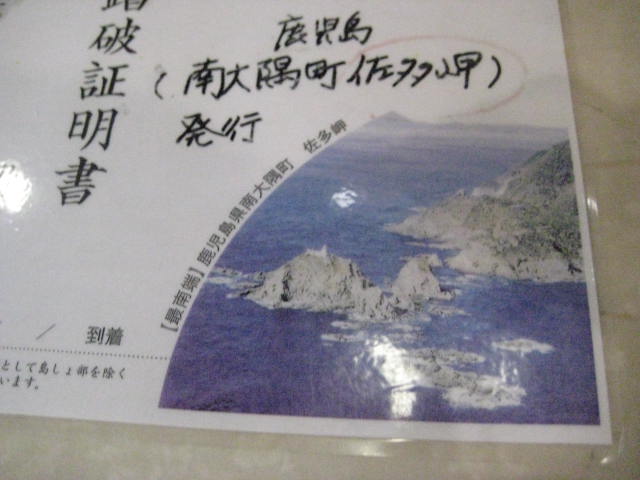 踏破証明書
鹿児島
(南大隅町佐多岬)
発行
【最南端】鹿児島県南大隅町 佐多岬
/ 到着
として島しょ部を除く
います。